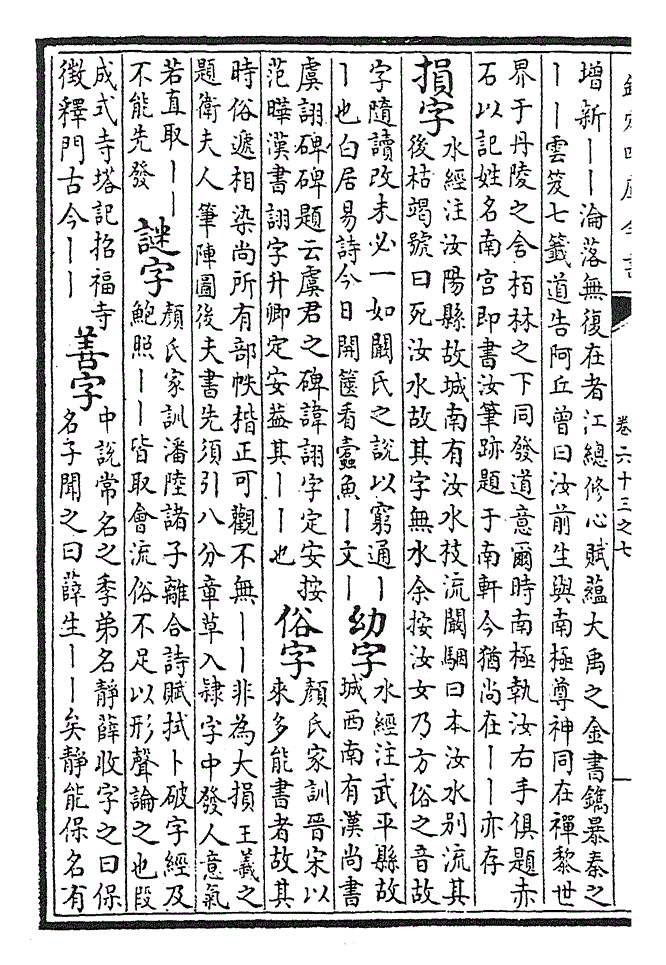 卷六十三之七
增新〡〡淪落無復在者江總修心賦蘊大禹之金書鐫暴秦之
〡〡雲笈七籤道告阿丘曾曰汝前生與南極尊神同在禪黎世
界于丹陵之舍栢林之下同發道意爾時南極執汝右手俱題赤
石以記姓名南宫即書汝筆跡題于南軒今猶尚在〡〡亦存
損字
水經注汝陽縣故城南有汝水技流闞駰曰本汝水別流其
後枯竭號曰死汝水故其字無水余按汝女乃方俗之音故
字隨讀改未必一如闞氏之說以窮通〡
〡也白居易詩今日開篋看蠹魚〡文〡
幼字
水經注武平縣故
城西南有漢尚書
虞詡碑碑題云虞君之碑諱詡字定安按
范曄漢書詡字升卿定安葢其〡〡也
俗字
顏氏家訓晉宋以
來多能書者故其
時俗遞相染尚所有部帙楷正可觀不無〡〡非為大損王羲之
題衛夫人筆陣圖後夫書先須引八分章草入隷字中發人意氣
若直取〡〡
不能先發
謎字
顏氏家訓潘陸諸子離合詩賦拭卜破字經及
鮑照〡〡皆取會流俗不足以形聲論之也段
成式寺塔記招福寺
徵釋門古今〡〡
善字
中說常名之季弟名靜薛收字之曰保
名子聞之曰薛生〡〡矣靜能保名有